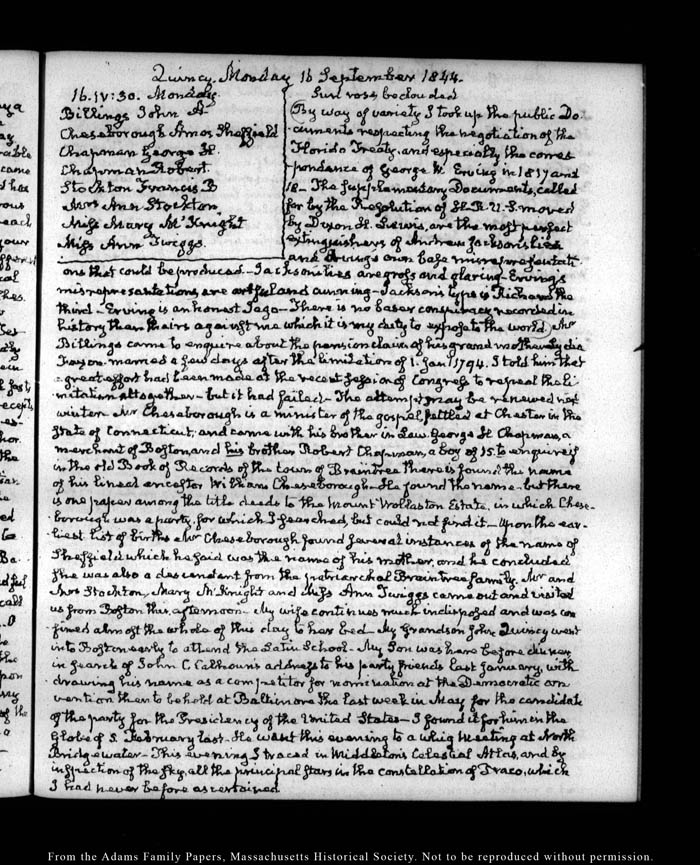 Quincy. Monday 16 September 1844.
16. IV:30. Monday.
Billings John A
Cheseborough Amos Sheffield
Chapman George H.
Chapman Robert.
Stockton Francis B
Mrs Ann Stockton
Miss Mary McKnight
Miss Ann Twiggs.
Sun rose beclouded
By way of variety I took up the public Do-
cuments respecting the negotiation of the
Florida Treaty, and especially the corres
pondence of George W. Erving in 1817 and
18 — The supplementary Documents, called
for by the Resolution of H.R.U.S. moved
by Dixon H. Lewis, are the most perfect
extinguishers of Andrew Jackson's lies
and Ervings own base misrepresentati
ons that could be produced — Jacksons lies are gross and glaring — Ervings
misrepresentations are artful and cunning — Jackson's type is Richard the
third — Erving is an honest Iago — There is no baser conspiracy recorded in
history than theirs against me which it is my duty to expose to the world. Mr
Billings came to enquire about the pension claim of his grandmother Lydia
married a few days after the limitation of 1. Jany 1794. I told him that
a great effort had been made at the recent Session of Congress to repeal the li-
mitation altogether — but it had failed — The attempt may be renewed next
winter. Mr Cheseborough is a minister of the gospel settled at Chester in the
State of Connecticut, and came with his brother in Law. George H Chapman, a
merchant of Boston, and his brother Robert Chapman, a boy of 15. to enquire if
in the old Book of Records of the town of Braintree there is found the name
of his lineal ancestor William Cheseborough — He found the name — but there
is one paper among the title deeds to the Mount Wollaston Estate, in which Chese-
borough was a party, for which I searched, but could not find it — Upon the ear-
liest list of births Mr Cheseborough found several instances of the name of
Sheffield which he said was the name of his mother, and he concluded
she was also a descendant from the patriarchal Braintree family. Mr and
Mrs Stockton, Mary McKnight and Miss Ann Twiggs came out and visited
us from Boston this afternoon — My wife continues much indisposed and was con
fined almost the whole of this day to her bed — My Grandson John Quincy went
into Boston early to attend the Latin School — My Son was here before dinner
in search of John C. Calhoun's address to his party friends last January, with
drawing his name as a competitor for nomination at the Democratic con
vention then to be held at Baltimore the last week in May for the candidate
of the party for the Presidency of the United States — I found it for him in the
Globe of 5. February last — He went this evening to a whig Meeting at North
Bridgewater — This evening I traced in Middleton's Celestial Atlas, and by
inspection of the sky, all the principal stars in the constellation of Draco, which
I had never before ascertained
From the Adams Family Papers, Massachusetts Historical Society. Not to be reproduced without permission.